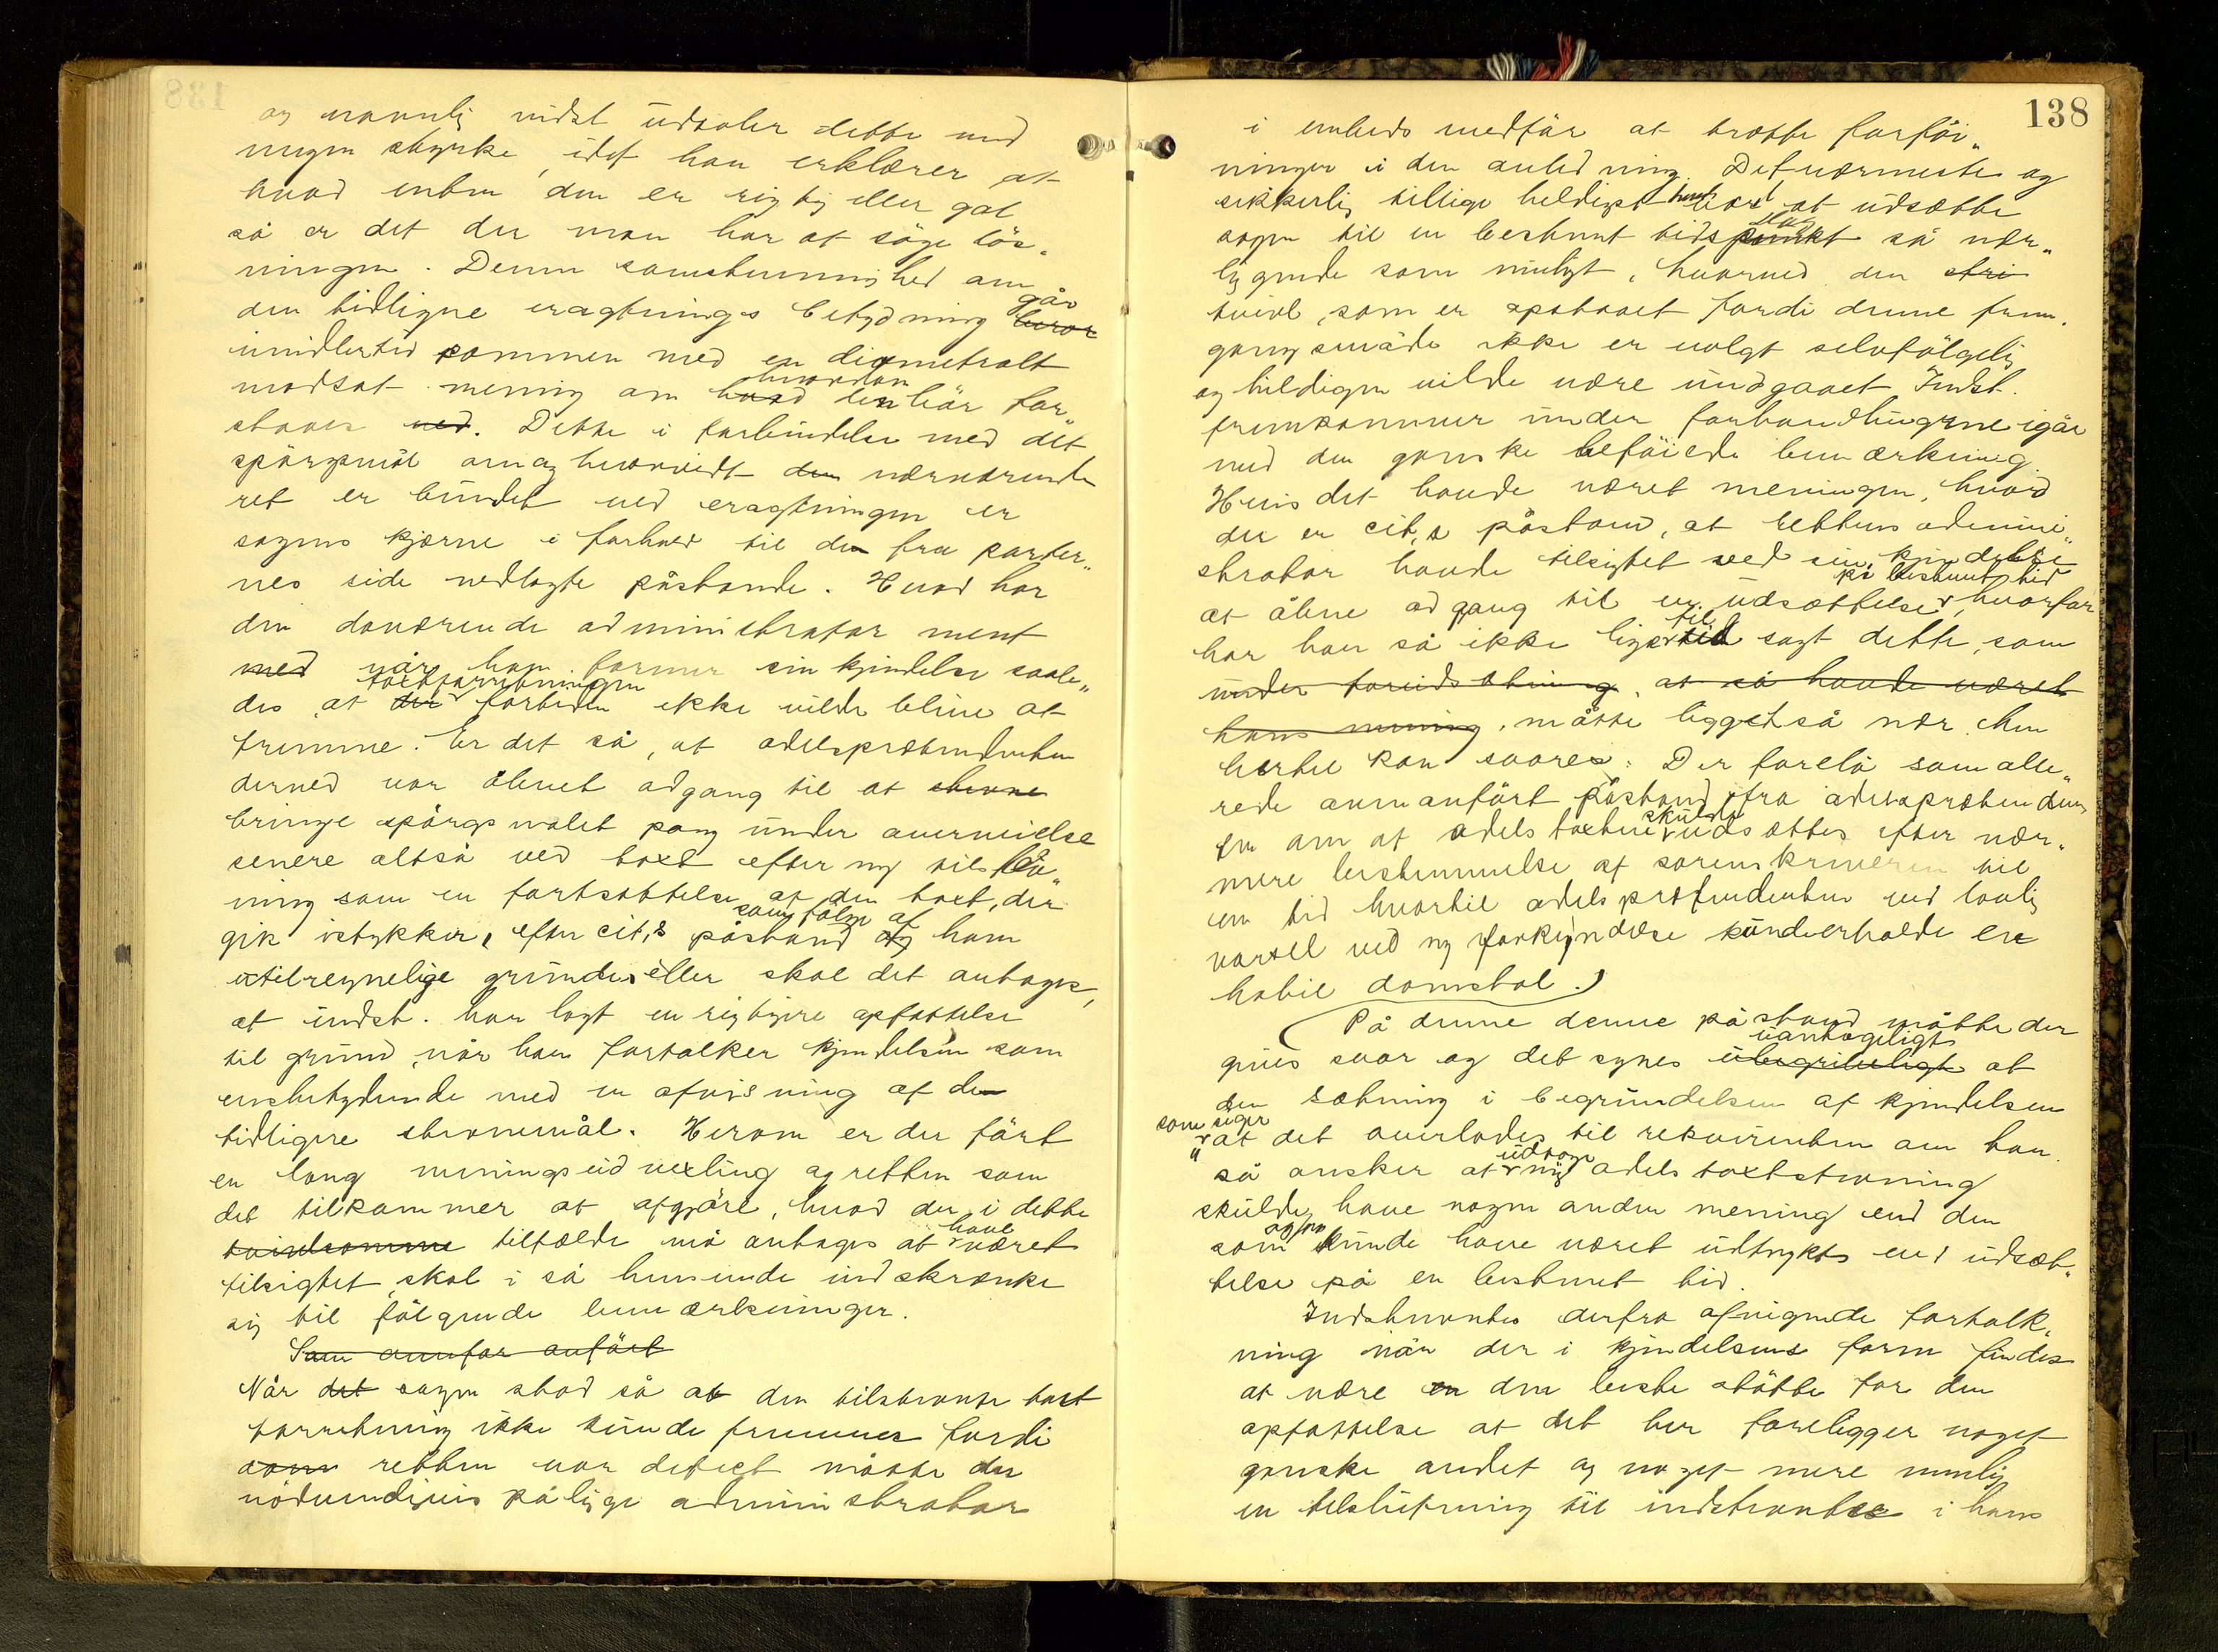 og navnlig sidst udtaler dette med
megen styrke, idet han erklærer at
hvad enten den er rigtig eller gal
så er det der man har at søge løs„
ningen. Denne samstemmighed om
den tidligere eragtnings betydning går
imidlertid sammen med en diametralt
modsat mening om hvordan den bør for„
staaes. Dette i forbindelse med det
spørgsmål om og hvorvidt nærværende
ret er bundet ved eragtningen er
sagens kjerne i forhold til de fra parter„
nes side nedlagte påstande. Hvad har
den daværende administrator ment
med når han former sin kjendelse saale„
des, at takstforretningen ikke vilde blive at
fremme. Er det så, at odelsprætendenten
derved var åbnet adgang til at
bringe spørgsmalet paany under avermielse
senere altså ved taxt efter ny tilstev„
ning som en fortsættelse af den taxt, der
gik istykker, efter cit,s påstand som følge af ham
utilregnelige grunde, eller skal det antages,
at indst. har lagt en rigtigere opfattelse
til grund, når han fortolker kjendelsen som
ensbetydende med en afvisning af den
tidligere stevnemål. Herom er der ført
en lang meningsudvexling og retten som
det tilkommer at afgjøre, hvad der i dette
tvivlsomme tilfælde må antages at have været
tilsigtet, skal i så henseende indskrænke
sig til følgende bemærkninger.
Som ovenfor anført
Når det sagen stod så at den tilstevnte taxt
forretning ikke kunde fremmes fordi
retten var defect måtte det
nødvendigvis pålige administrator
138
i embeds medfør at træffe forføi„
ninger i den anledning. Det nærmeste og
sikkerlig tillige heldigst havde været at udsætte
sagen til en bestemt tidspunkt så nær„
liggende som muligt, hvorved den
tvivl, som er opstaaet fordi denne frem„
gangsmåde ikke er valgt selvfølgelig
og heldigen vilde være undgaaet. Indst.
fremkommer under forhandlingerne igår
med den ganske beføiede bemærkning.
Hvis det havde været meningen, hvad
der er cit,s påstand, at rettens admini„
strator havde tilsigtet ved sin kjendelse
at åbne adgang til en udsættelse på bestemt tid, hvorfor
har han så ikke ligetil sagt dette, som
under foreidsætning, at så havde været
hans mening, måtte ligget så nær. Men
hertil kan svares: Der forelå som alle„
rede ovenanført påstand fra odelsprætendenten
om at odelstaxten skulde udsættes efter nær„
mere bestemmelse af sorenskriveren til
en tid hvortil odelsprætendenten ved lovlig
varsel ved ny forkyndelse kunde erholde en
habil domstol.
På denne denne påstand måtte der
gives svar og det synes uantageligt at
den sætning i begrundelsen af kjendelsen
som siger
„at det overlades til rekvirenten om han
så ønsker at udtage ny odelstaxtstevning
skulde have nogen anden mening end den
som også kunde have været udtrykt ved udsæt„
telse på en bestemt tid.
Indstevntes derfra afvigende fortolk„
ning når der i kjendelsens form findes
at være den beste støtte for den
opfattelse at det her foreligger noget
ganske andet og noget mere nemlig
en tilslutning til indstevntes i hans